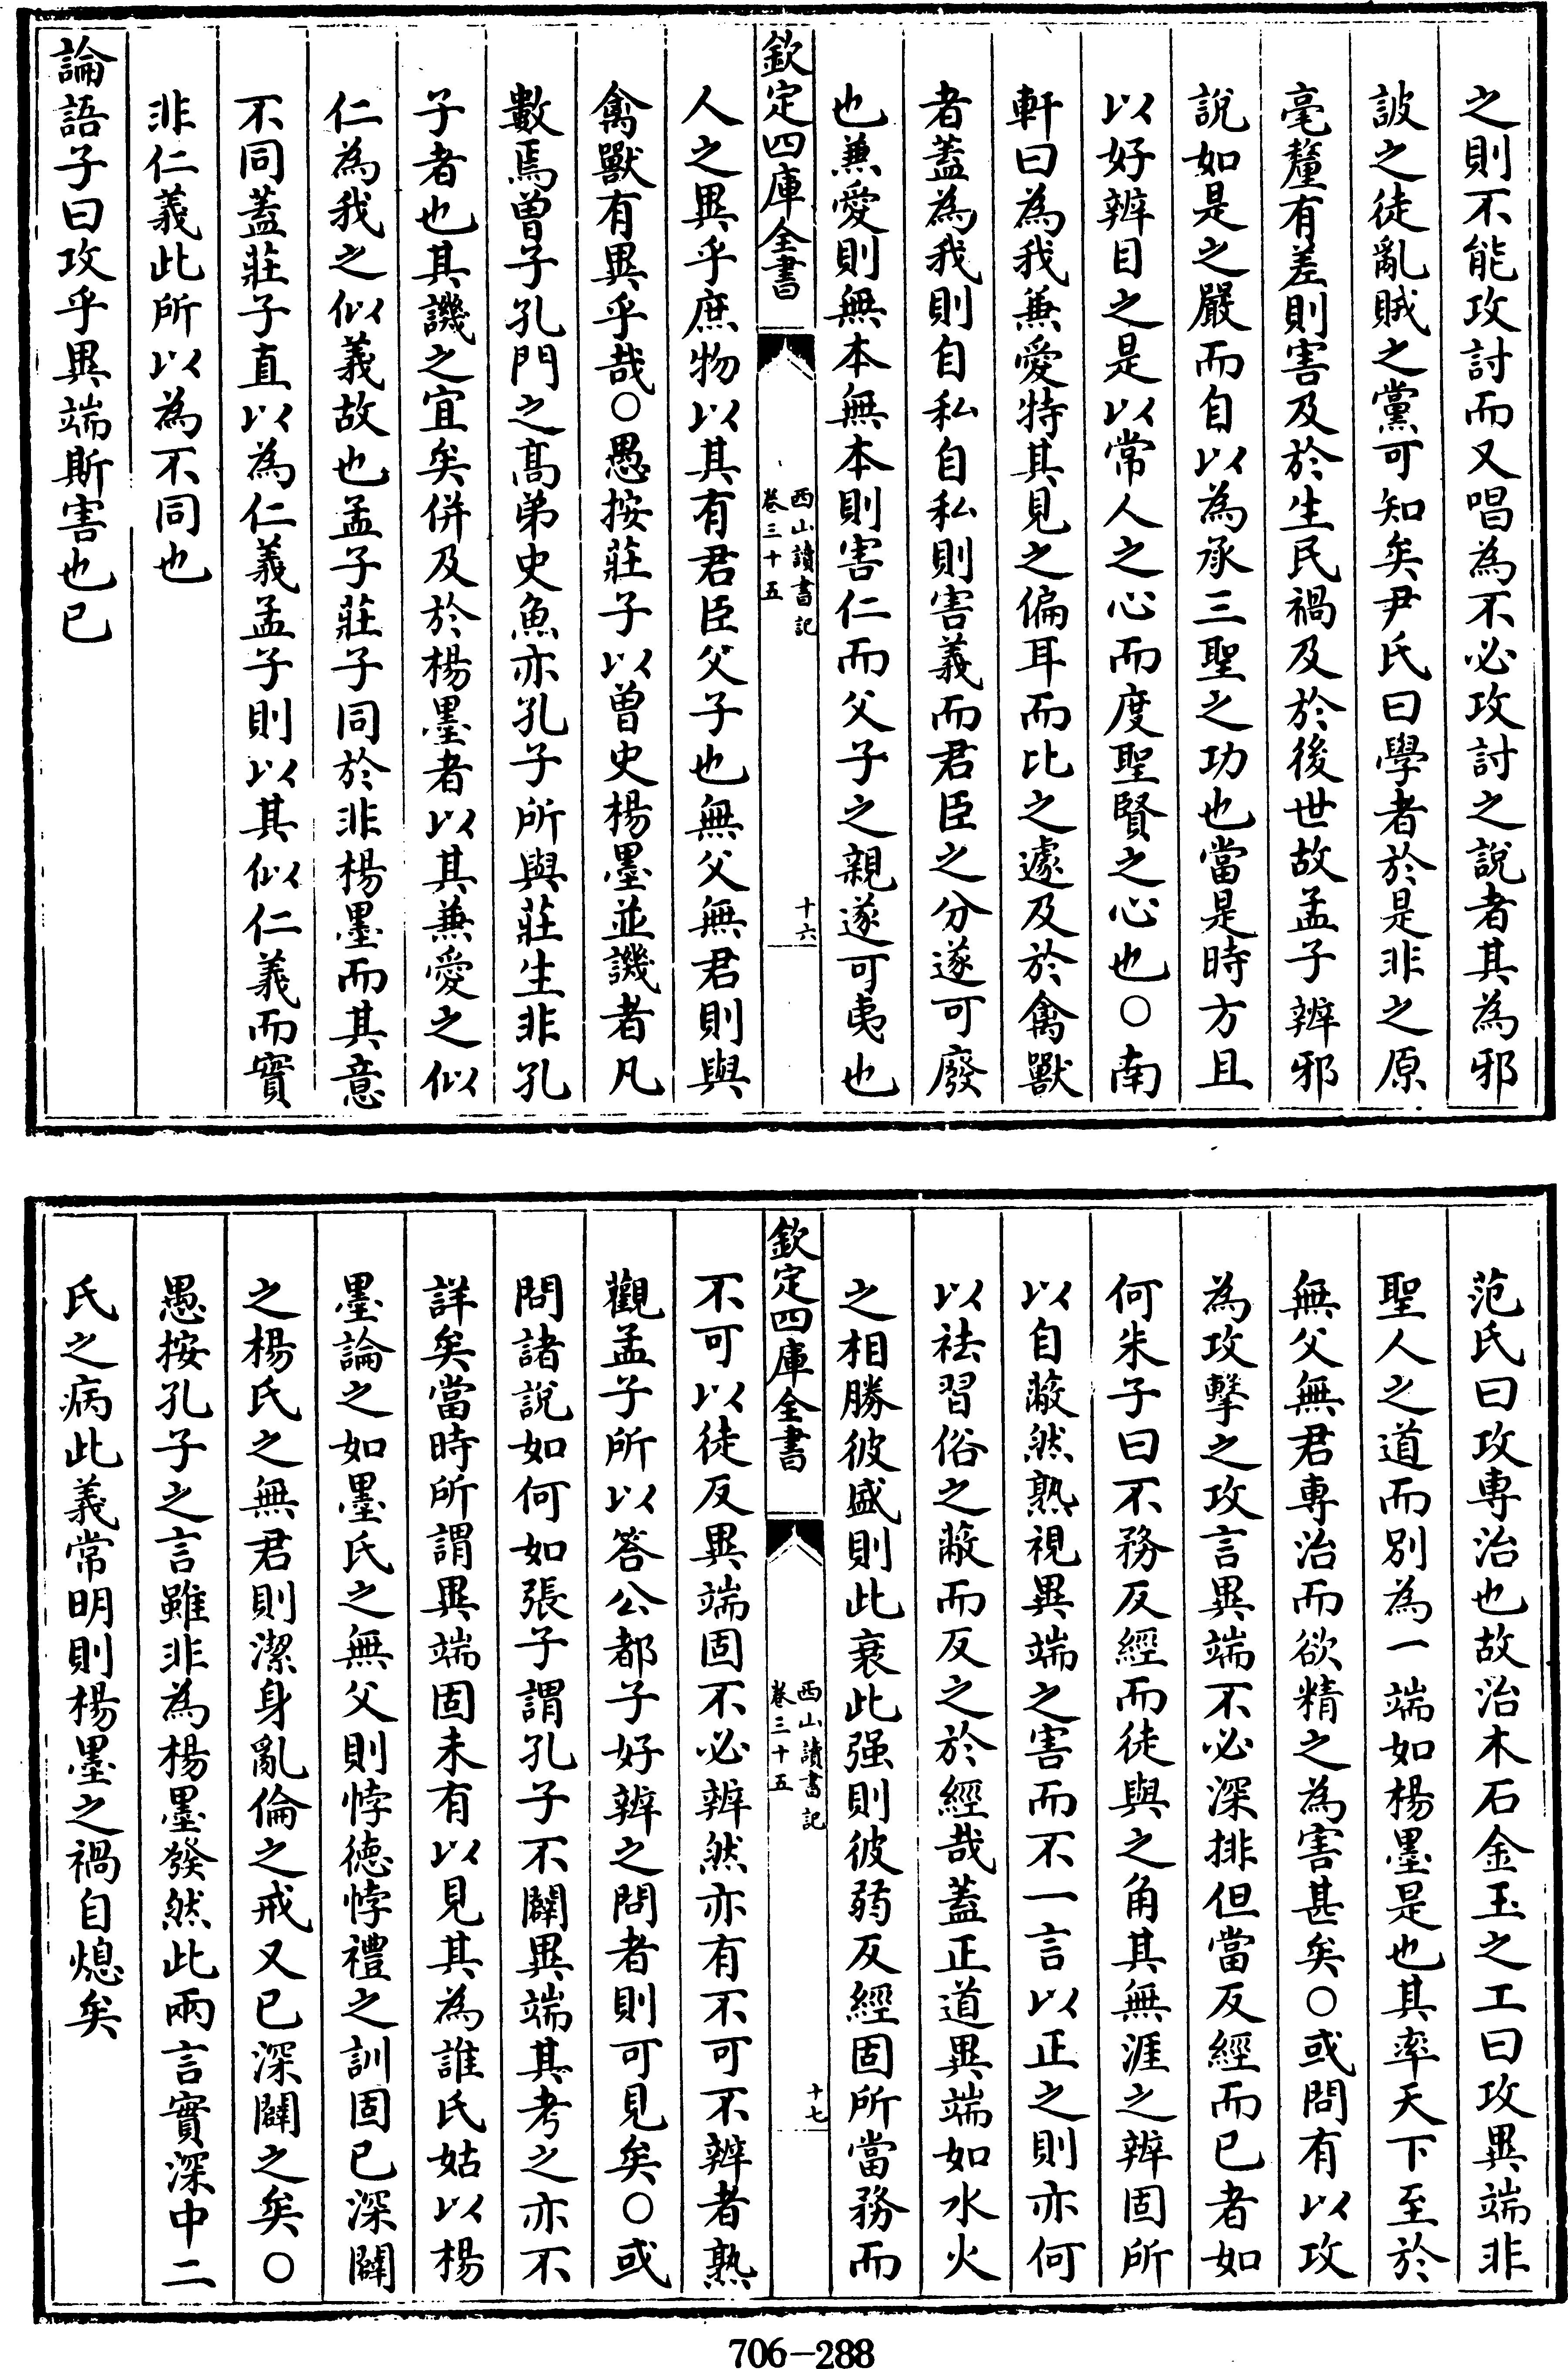 之則不能攻討而又唱為不必攻討之說者其為邪
詖之徒亂賊之黨可知矣尹氏曰學者於是非之原
毫釐有差則害及於生民禍及於後世故孟子辨邪
說如是之嚴而自以為承三聖之功也當是時方且
以好辨目之是以常人之心而度聖賢之心也○南
軒曰為我兼愛特其見之偏耳而比之遽及於禽獸
者蓋為我則自私自私則害義而君臣之分遂可廢
也兼愛則無本無本則害仁而父子之親遂可夷也
欽定四庫全書
西山讀書記
卷三十五
十六
人之異乎庶物以其有君臣父子也無父無君則與
禽獸有異乎哉○愚按莊子以曾史楊墨並譏者凡
數焉曾子孔門之高弟史魚亦孔子所與莊生非孔
子者也其譏之宜矣併及於楊墨者以其兼愛之似
仁為我之似義故也孟子莊子同於非楊墨而其意
不同蓋莊子直以為仁義孟子則以其似仁義而實
非仁義此所以為不同也
論語子曰攻乎異端斯害也已
范氏曰攻専治也故治木石金玉之工曰攻異端非
聖人之道而別為一端如楊墨是也其率天下至於
無父無君専治而欲精之為害甚矣○或問有以攻
為攻擊之攻言異端不必深排但當反經而已者如
何朱子曰不務反經而徒與之角其無涯之辨固所
以自蔽然熟視異端之害而不一言以正之則亦何
以袪習俗之蔽而反之於經哉蓋正道異端如水火
之相勝彼盛則此衰此强則彼弱反經固所當務而
欽定四庫全書
西山讀書記
卷三十五
十七
不可以徒反異端固不必辨然亦有不可不辨者熟
觀孟子所以答公都子好辨之問者則可見矣○或
問諸說如何如張子謂孔子不闢異端其考之亦不
詳矣當時所謂異端固未有以見其為誰氏姑以楊
墨論之如墨氏之無父則悖德悖禮之訓固已深闢
之楊氏之無君則潔身亂倫之戒又已深闢之矣○
愚按孔子之言雖非為楊墨發然此兩言實深中二
氏之病此義常明則楊墨之禍自熄矣
706-288